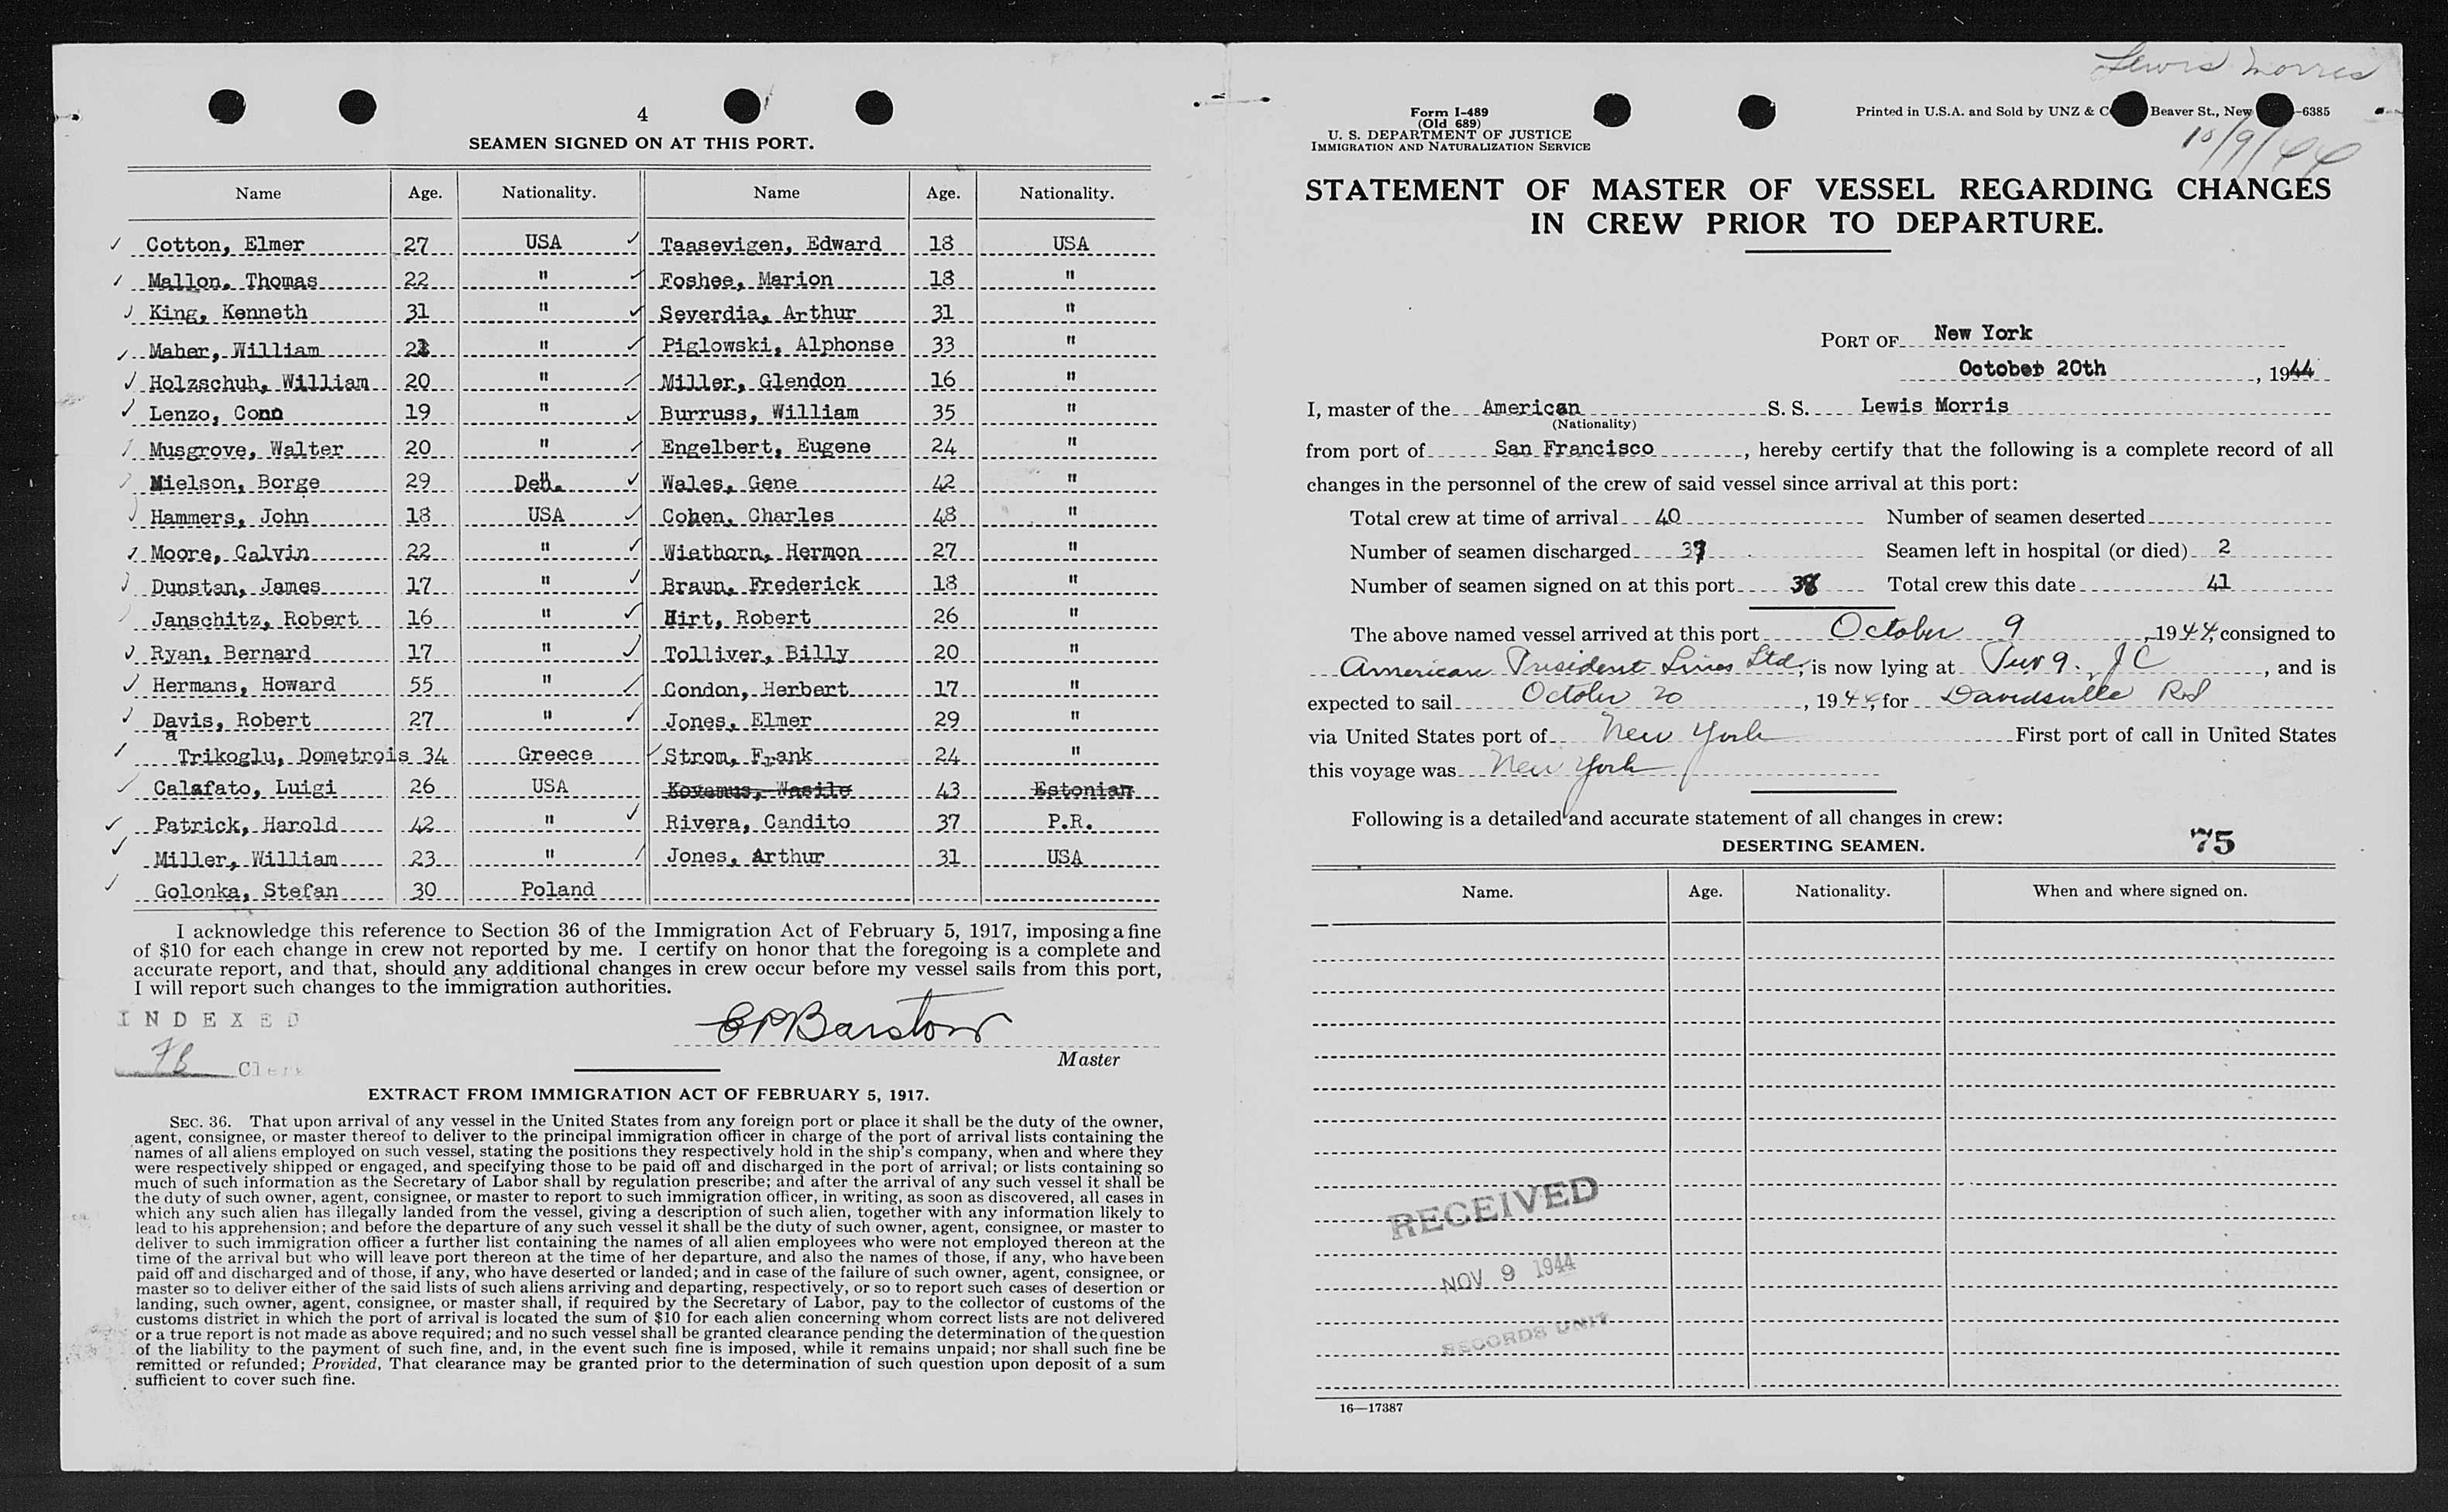 4
SEAMEN SIGNED ON AT THIS PORT.
Name Age. Nationality. Name Age. Nationality.
✓ Cotton, Elmer 27 USA ✓ Taasevigen, Edward 18 USA
✓ Mallon, Thomas 22 " ✓ Foshee, Marion 18 "
✓ King, Kenneth 31 " ✓ Severdia, Arthur 31 "
✓ Maher, William 2 " ✓ Piglowski, Alphonse 33 "
✓ Holzschuh, William 20 " ✓ Miller, Glendon 16 "
✓ Lenzo, Conn 19 " ✓ Burruss, William 35 "
✓ Musgrove, Walter 20 " ✓ Engelbert, Eugene 24 "
✓ Nielson, Borge 29 Den. ✓ Wales, Gene 42 "
✓ Hammers, John 18 USA ✓ Cohen, Charles 48 "
✓ Moore, Calvin 22 " ✓ Wiathorn, Hermon 27 "
✓ Dunstan, James 17 " ✓ Braun, Frederick 18 "
✓ Janschitz, Robert 16 " ✓ Hirt, Robert 26 "
✓ Ryan, Bernard 17 " ✓ Tolliver, Billy 20 "
✓ Hermans, Howard 55 " ✓ Condon, Herbert 17 "
✓ Davis, Robert 27 " ✓ Jones, Elmer 29 "
a
✓ Trikoglu, Dometrois 34 Greece ✓ Strom, Frank 24 "
✓ Calafato, Luigi 26 USA Kovamus, Wasile 43 Estonian
✓ Patrick, Harold 42 " ✓ Rivera, Candito 37 P.R.
✓ Miller, William 23 " ✓ Jones, Arthur 31 USA
✓ Golonka, Stefan 30 Poland
I acknowledge this reference to Section 36 of the Immigration Act of February 5, 1917, imposing a fine
of $10 for each change in crew not reported by me. I certify on honor that the foregoing is a complete and
accurate report, and that, should any additional changes in crew occur before my vessel sails from this port,
I will report such changes to the immigration authorities.
INDEXED
EPBarstow
FB Clerk
Master
EXTRACT FROM IMMIGRATION ACT OF FEBRUARY 5, 1917.
SEC. 36. That upon arrival of any vessel in the United States from any foreign port or place it shall be the duty of the owner,
agent, consignee, or master thereof to deliver to the principal immigration officer in charge of the port of arrival lists containing the
names of all aliens employed on such vessel, stating the positions they respectively hold in the ship's company, when and where they
were respectively shipped or engaged, and specifying those to be paid off and discharged in the port of arrival; or lists containing so
much of such information as the Secretary of Labor shall by regulation prescribe; and after the arrival of any such vessel it shall be
the duty of such owner, agent, consignee, or master to report to such immigration officer, in writing, as soon as discovered, all cases in
which any such alien has illegally landed from the vessel, giving a description of such alien, together with any information likely to
lead to his apprehension; and before the departure of any such vessel it shall be the duty of such owner, agent, consignee, or master to
deliver to such immigration officer a further list containing the names of all alien employees who were not employed thereon at the
time of the arrival but who will leave port thereon at the time of her departure, and also the names of those, if any, who have been
paid off and discharged and of those, if any, who have deserted or landed; and in case of the failure of such owner, agent, consignee, or
master so to deliver either of the said lists of such aliens arriving and departing, respectively, or so to report such cases of desertion or
landing, such owner, agent, consignee, or master shall, if required by the Secretary of Labor, pay to the collector of customs of the
customs district in which the port of arrival is located the sum of $10 for each alien concerning whom correct lists are not delivered
or a true report is not made as above required; and no such vessel shall be granted clearance pending the determination of the question
of the liability to the payment of such fine, and, in the event such fine is imposed, while it remains unpaid; nor shall such fine be
remitted or refunded; Provided, That clearance may be granted prior to the determination of such question upon deposit of a sum
sufficient to cover such fine.
Lewis Morris
Form I-489
(Old 689)
U. S. DEPARTMENT OF JUSTICE
IMMIGRATION AND NATURALIZATION SERVICE
Printed in U.S.A. and Sold by UNZ & C Beaver St., New -6385
10/9/44
STATEMENT OF MASTER OF VESSEL REGARDING CHANGES
IN CREW PRIOR TO DEPARTURE.
PORT OF New York
October 20th, 1944
I, master of the American S. S. Lewis Morris
(Nationality)
from port of San Francisco, hereby certify that the following is a complete record of all
changes in the personnel of the crew of said vessel since arrival at this port:
Total crew at time of arrival 40 Number of seamen deserted
Number of seamen discharged 37 Seamen left in hospital (or died) 2
Number of seamen signed on at this port 38 Total crew this date 41
The above named vessel arrived at this port October 9, 1944, consigned to
American President Lines Ltd, is now lying at Pier 9. JC, and is
expected to sail October 20, 1944, for Davidsville Rd
via United States port of New York First port of call in United States
this voyage was New York
Following is a detailed and accurate statement of all changes in crew:
DESERTING SEAMEN. 75
Name. Age. Nationality. When and where signed on.
RECEIVED
NOV 9 1944
RECORDS UNIT
16—17387